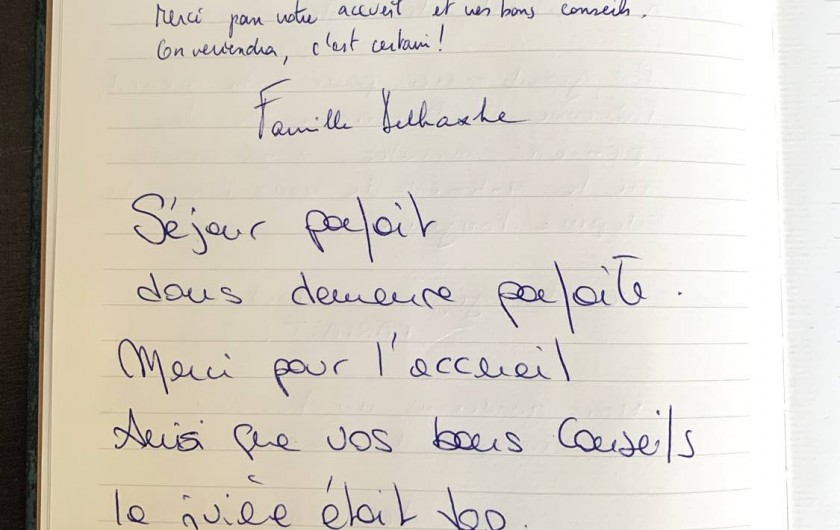 Merci pour votre accueil et vos bons conseils.
On reviendra, c'est certain !
Famille Delhaxhe
Séjour parfait
dans demeure parfaite.
Merci pour l'accueil
Ainsi que vos bons conseils
la était top.